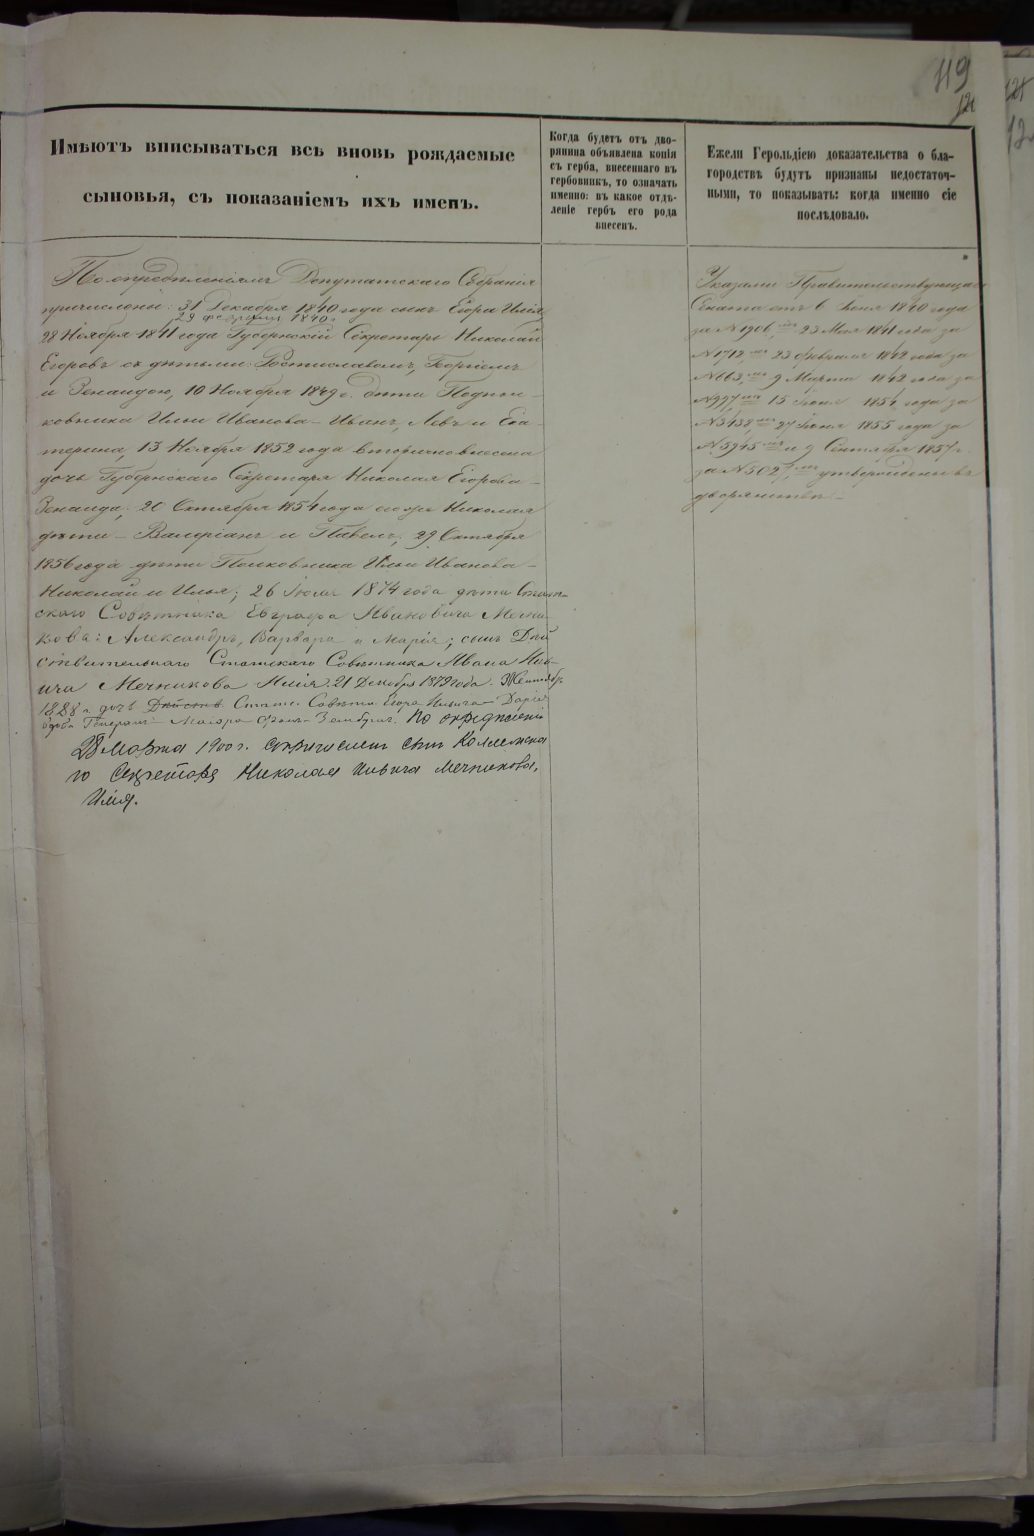 119
121
Имѣютъ вписываться всѣ вновь рождаемые
сыновья, съ показаніемъ ихъ именъ.
Когда будетъ отъ дво-
рянина объявлена копія
съ герба, внесеннаго въ
гербовникъ, то означать
именно: въ какое отдѣ-
леніе гербъ его рода
внесенъ.
Ежели Герольдіею доказательства о бла-
городствѣ будутъ признаны недостаточ-
ными, то показывать: когда именно сіе
послѣдовало.
По опредѣленіямъ Депутатскаго Собранія
причислены: 31 Декабря 1840 года сынъ Егора Илія,
29 февраля 1840 г.
28 Ноября 1841 года Губернскій Секретарь Николай
Егоровъ съ дѣтьми: Ростиславомъ, Георгіемъ
и Зенаидою, 10 Ноября 1849 г. дѣти Подпол-
ковника Ильи Иванова – Иванъ, Левъ и Ека-
терина, 13 Ноября 1852 года вторично внесена
дочь Губернскаго Секретаря Николая Егорова –
Зенаида, 20 Октября 1854 года его же Николая
дѣти – Валеріанъ и Павелъ, 29 Октября
1856 года дѣти Полковника Ильи Иванова –
Николай и Илья; 26 Іюля 1874 года дѣти Стат-
скаго Совѣтника Евграфа Ивановича Мечни-
кова: Александръ, Варвара и Марія; сынъ Дѣй
ствительнаго Статскаго Совѣтника Ивана Иль-
ича Мечникова Илія. 21 Декабря 1879 года.
1888 г. дочь Дѣйств. Статс. Совѣтн. Егора Ильича Дарія
вдова Генералъ-Маіора фонъ- По опредѣленію
28 Марта 1900 г. сопричисленъ сынъ Коллежска
го Секретаря Николая Ильича Мечникова,
Илія.
Указами Правительствующаго
Сената отъ 6 Іюня 1840 года
за № 1906, 23 Мая 1841 года за
№ 1712, 23 Февраля 1842 года за
№ 663, 9 Марта 1842 года за
№ 997, 15 Іюня 1851 года за
№ 3438, 27 Іюня 1855 года за
№ 5945 и 9 Сентября 1857 г.
за № 5027, утверждены въ
дворянствѣ –